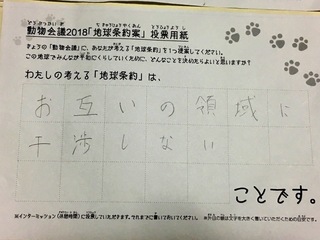 動物会議2018「地球条約案」投票用紙
きょうの「動物会議」に、あなたが考える「地球条約」を1つ提案してください。
この地球でみんなが平和にくらしていくために、どんなことを決めたらよいと思いますか?
わたしの考える「地球条約」は、
お互いの領域に
干渉しない
ことです。
※インターミッション(休憩時間)に投票していただきます。それまでに書いておいてください。